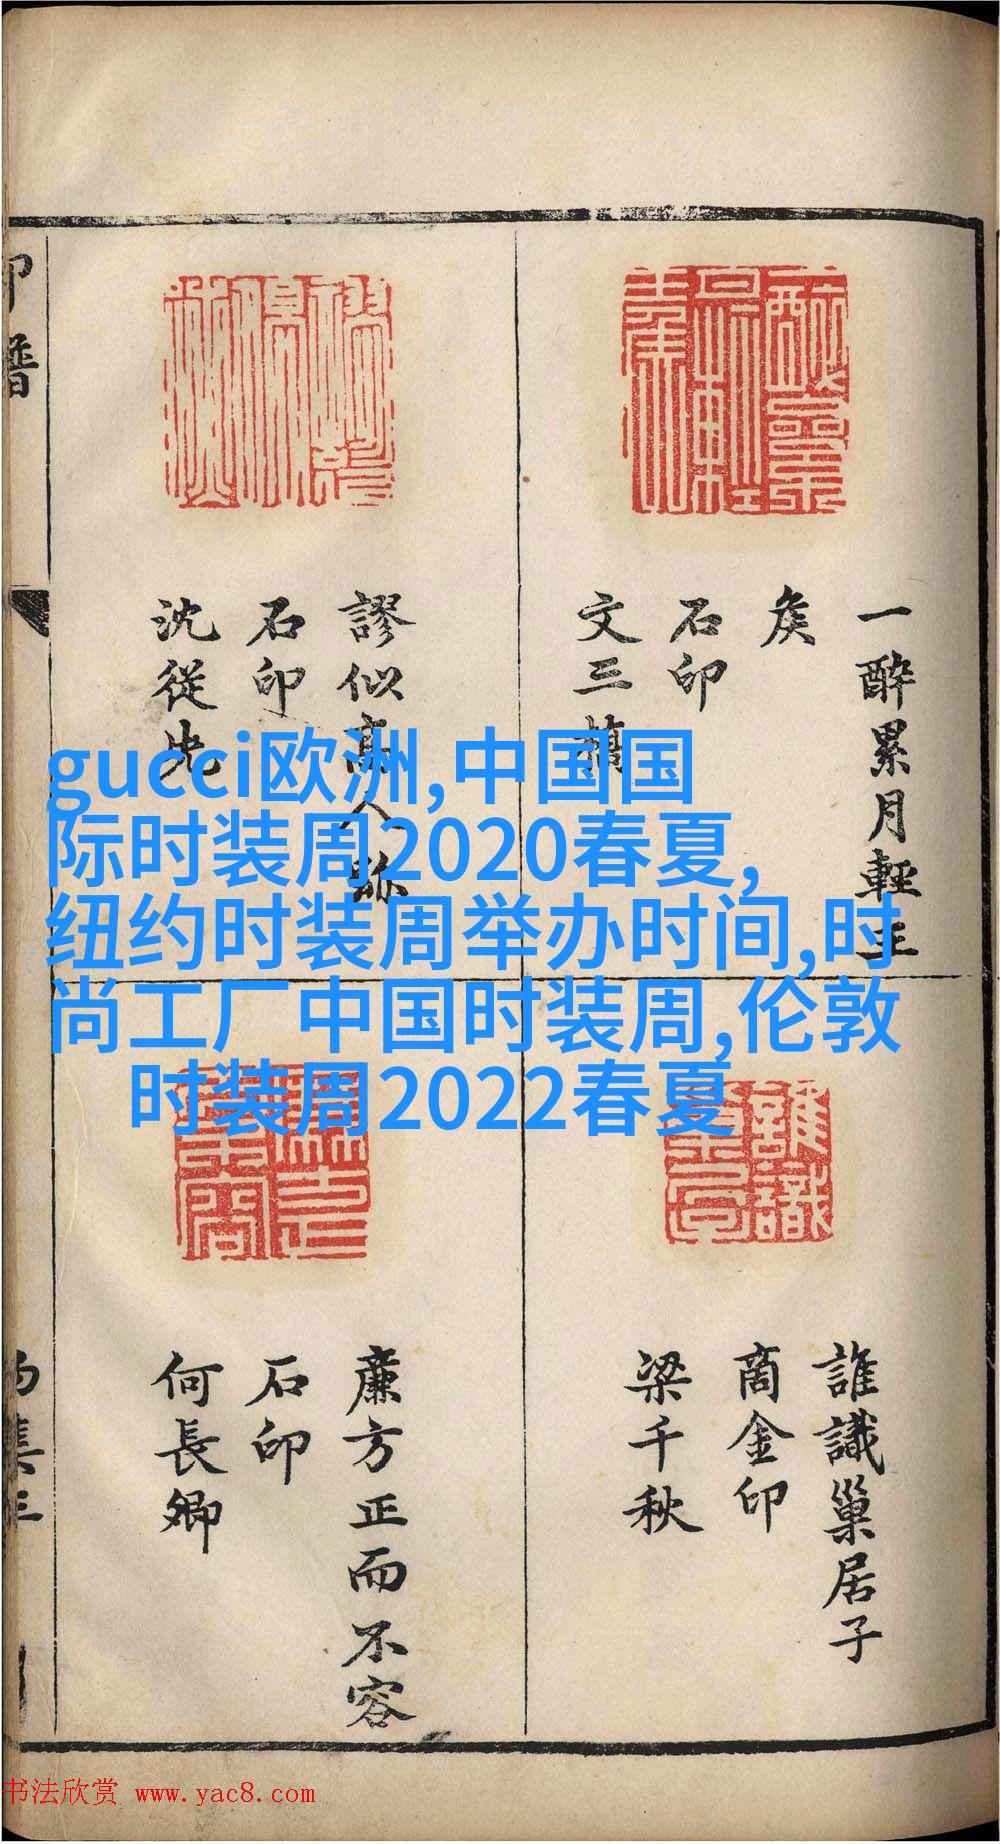 一醉累月輕王
矦
石印
文三橋
謬似高人跡
石印
沈從先
gucci欧洲,中国国
际时装周2020春夏,
纽约时装周举办时间,时
尚工厂中国时装周,伦敦
时装周2022春夏
誰識巢居子
商金印
梁千秋
廉方正而不容
石印
何長卿
印譜
书法欣赏 www.yac8.com